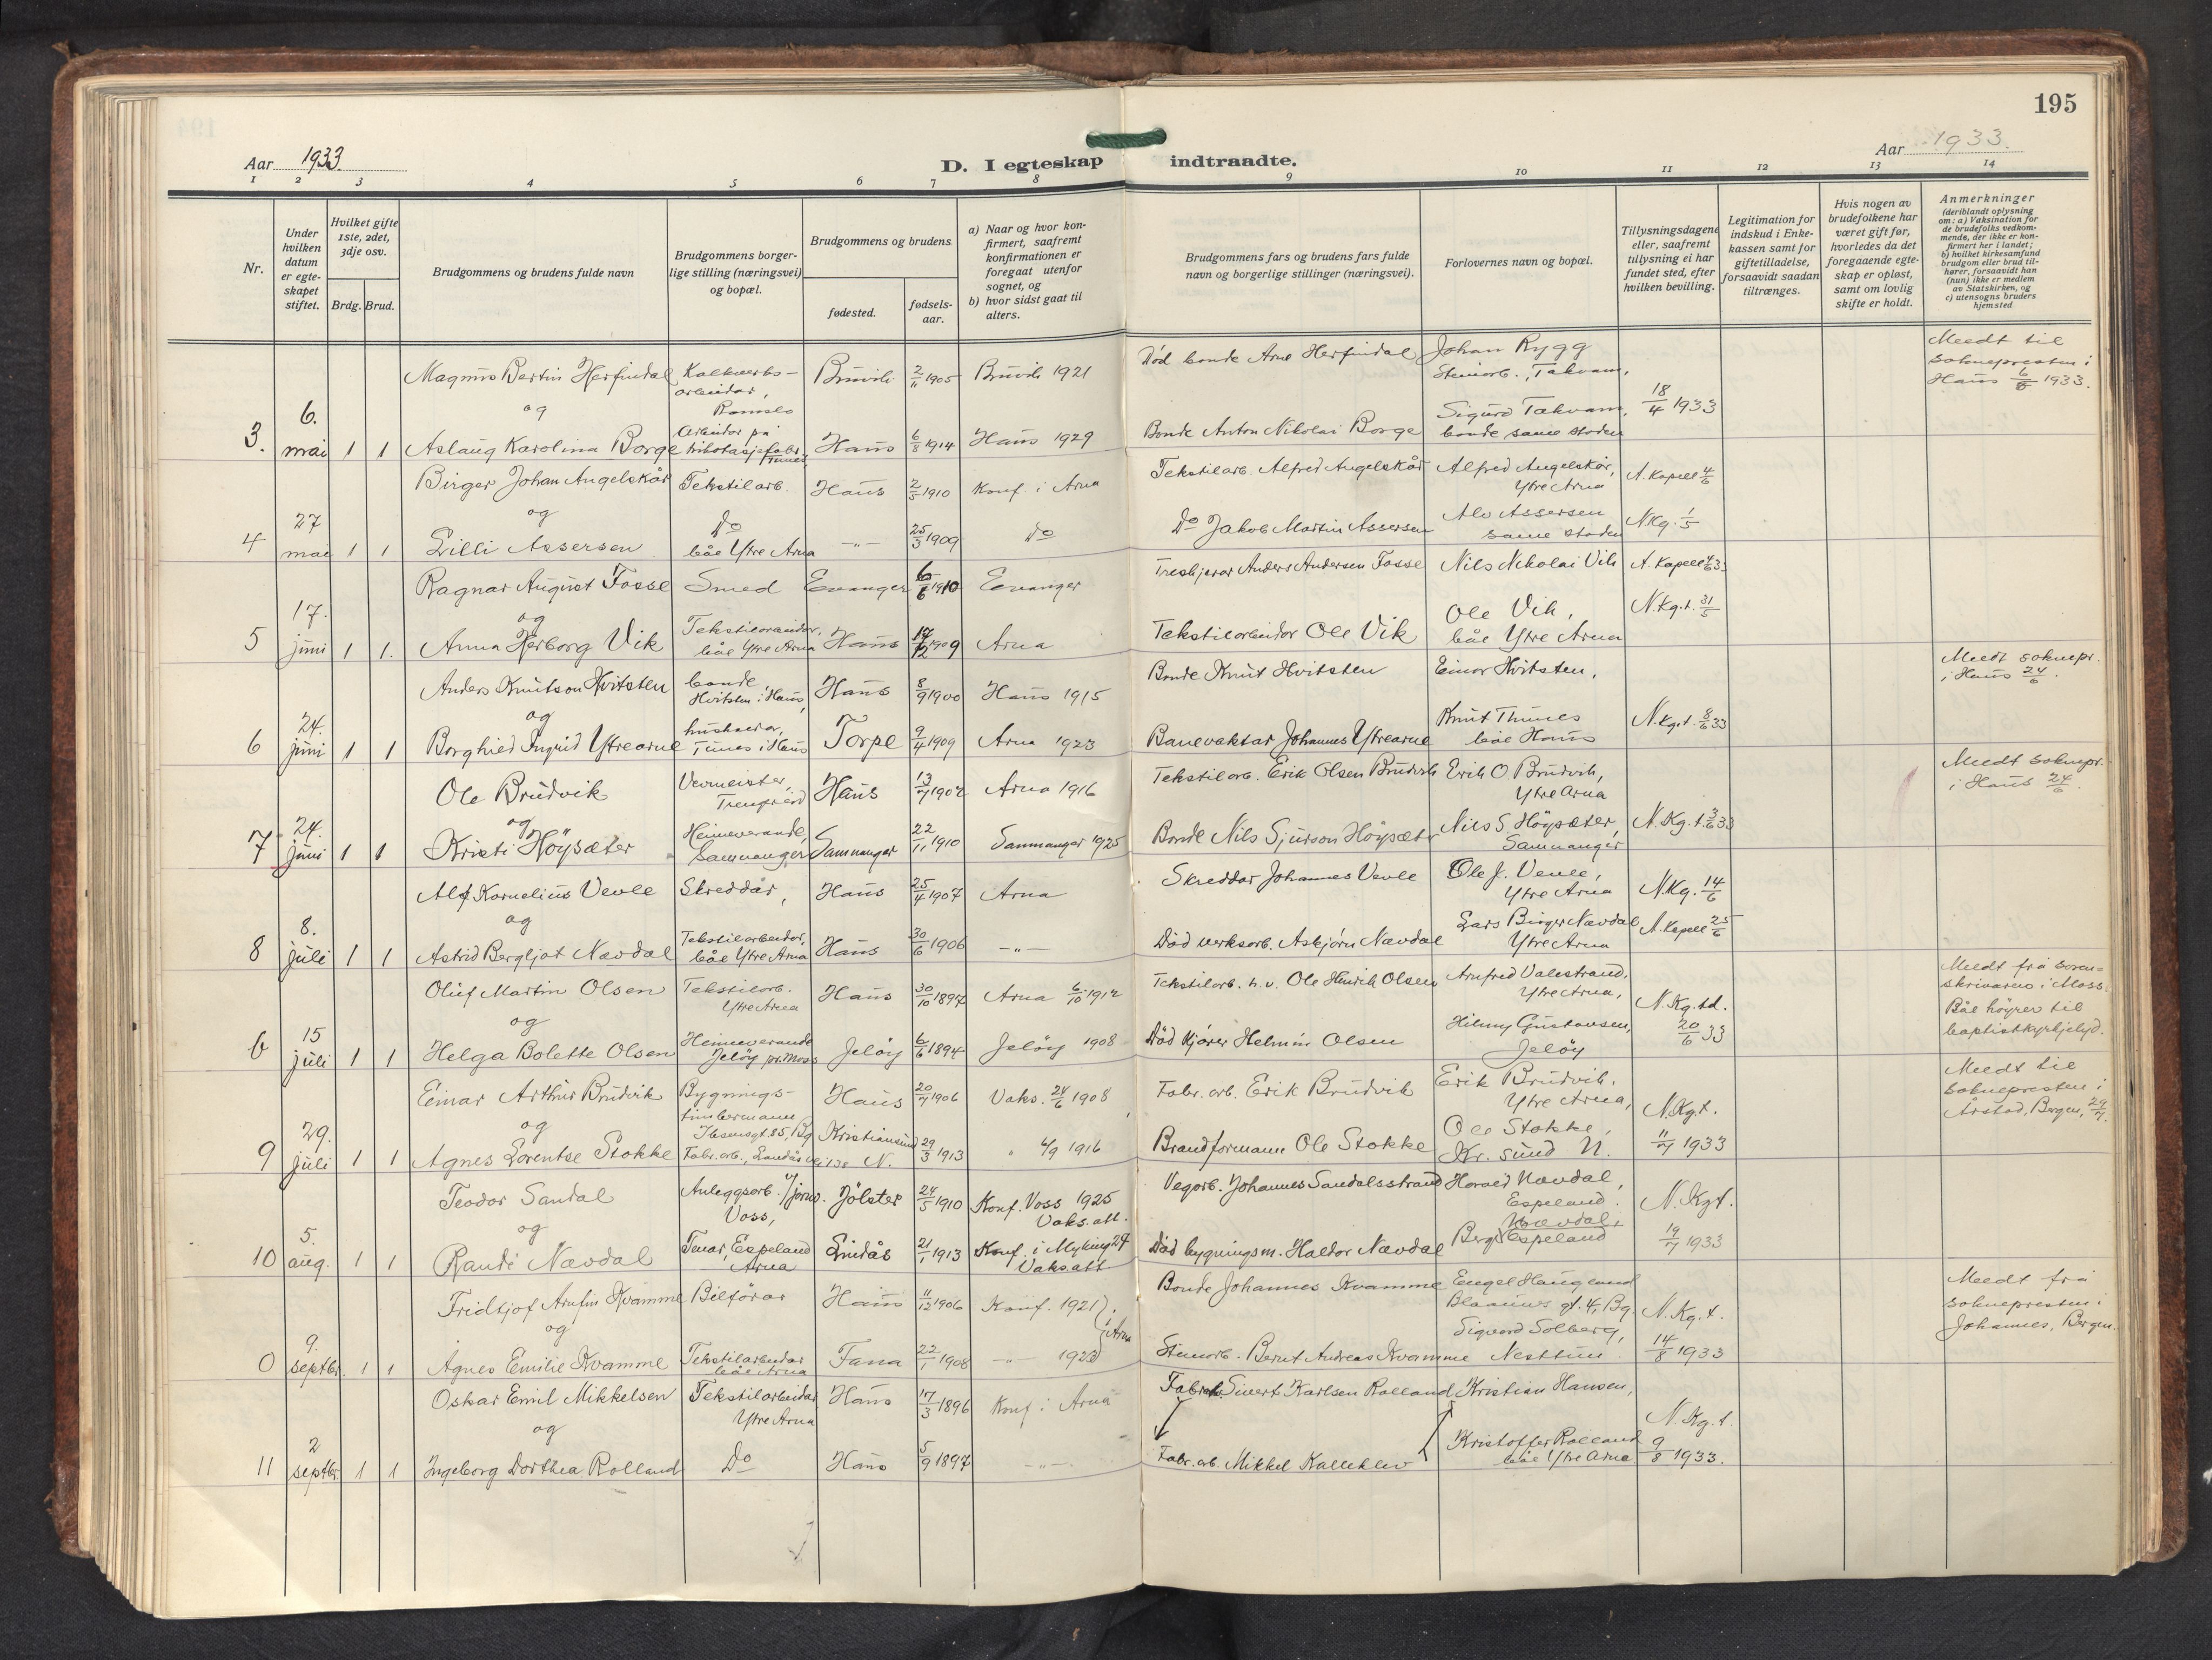 195
Aar 1933.
D. I egteskap indtraadte.
Aar 1933.
1 2 3 4 5 6 7 8 9 10 11 12 13 14
Nr.
Under hvilken datum er egteskapet stiftet.
Hvilket gifte 1ste, 2det, 3dje osv.
Brdg. Brud.
Brudgommens og brudens fulde navn
Brudgommens borgerlige stilling (næringsvei) og bopæl.
Brudgommens og brudens
fødested.
fødselsaar.
a) Naar og hvor konfirmert, saafremt konfirmationen er foregaat utenfor sognet, og
b) hvor sidst gaat til alters.
Brudgommens fars og brudens fars fulde navn og borgerlige stillinger (næringsvei).
Forlovernes navn og bopæl.
Tillysningsdagene eller, saafremt tillysning ei har fundet sted, efter hvilken bevilling.
Legitimation for indskud i Enkekassen samt for giftetilladelse, forsaavidt saadan tiltrænges.
Hvis nogen av brudefolkene har været gift før, hvorledes da det foregaaende egteskap er opløst, samt om lovlig skifte er holdt.
Anmerkninger (deriblandt oplysning om: a) Vaksination for de brudefolks vedkommende, der ikke er konfirmert her i landet; b) hvilket kirkesamfund brudgom eller brud tilhører, forsaavidt han (hun) ikke er medlem av Statskirken, og c) utensogns bruders hjemsted
3. 6. mai 1 1
Magnus Bertin Herfindal Kalkverks-arbeidar, Romslo Bruvik 2/11 1905 Bruvik 1921 Død bonde Arne Herfindal Johan Rygg Steinarb., Takvam,
og
Aslaug Karolina Borge Arbeidar på trikotasjefabr. Tunes Haus 6/8 1914 Haus 1929 Bonde Anton Nikolai Borge Sigurd Takvam, bonde same staden 18/4 1933
Meldt til soknepresten i Haus 6/5 1933.
4 27 mai 1 1
Birger Johan Angelskår Tekstilarb. Haus 2/5 1910 Konf. i Arna Tekstilarb. Alfred Angelskår Alfred Angelskår, Ytre Arna A. Kapell 4/6
og
Lilli Assersen Do båe Ytre Arna -"- 25/3 1909 Do Do Jakob Martin Assersen Alv Assersen same staden N.Kg. 1/5
5 17. juni 1 1.
Ragnar August Fosse Smed Evanger 6/6 1910 Evanger Treskjerar Anders Andersen Fosse Nils Nikolai Vik A. Kapell 4/6 33
og
Anna Herborg Vik Tekstilarbeidar, båe Ytre Arna Haus 17/12 1909 Arna Tekstilarbeidar Ole Vik Ole Vik, båe Ytre Arna N.Kg.t. 31/5
6 24. juni 1 1
Anders Knutson Hvitsten bonde Hvitsten i Haus, Haus 8/9 1900 Haus 1915 Bonde Knut Hvitsten Einar Hvitsten,
og
Borghild Ingrid Ytrearne hushaldar, Tunes i Haus Torpe 9/4 1909 Arna 1923 Banevaktar Johannes Ytrearne Knut Thunes båe Haus N.Kg.t. 8/6 33
Meldt soknepr. i Haus 24/6.
7 24. juni 1 1
Ole Brudvik Vevmeister, Trengereid Haus 13/7 1902 Arna 1916 Tekstilarb. Erik Olsen Brudvik Erik O. Brudvik, Ytre Arna
og
Kristi Höysæter Heimeverande, Samnanger Samnanger 22/11 1910 Samnanger 1925 Bonde Nils Sjurson Höysæter Nils S. Höysæter, Samnanger N.Kg.t. 3/6 33
Meldt soknepr. i Haus 24/6.
8 8. juli 1 1
Alf Kornelius Vevle Skreddar, Haus 25/4 1907 Arna Skreddar Johannes Vevle Ole J. Vevle, Ytre Arna N.Kg. 14/6
og
Astrid Bergljot Nævdal Tekstilarbeidar, båe Ytre Arna Haus 30/6 1906 -"- Død verksarb. Askjørn Nævdal Lars Birger Nævdal Ytre Arna A. Kapell 25/6
6 15 juli 1 1
Oluf Martin Olsen Tekstilarb. Ytre Arna Haus 30/10 1897 Arna 6/10 1912 Tekstilarb. h.v. Ole Henrik Olsen Arnfred Valestrand, Ytre Arna,
og
Helga Bolette Olsen Heimeverande Jeløy pr. Moss Jeløy 6/6 1894 Jeløy 1908 Død kjører Helmin Olsen Hilmy Gustavsen, Jeløy N.Kg.td. 20/6 33
Meldt frå sorenskrivaren i Moss. Båe høyrer til baptistkyrkjelyd.
9 29. juli 1 1
Einar Arthur Brudvik Bygnings-timbermann Ibsensgt. 85, Bg Haus 20/7 1906 Vaks. 24/6 1908 Fabr. arb. Erik Brudvik Erik Brudvik, Ytre Arna,
og
Agnes Lorentse Stokke Fabr. arb., Landåsvei 138 Kristiansund N. 29/3 1913 " 4/9 1916 Brandformann Ole Stokke Ole Stokke, Kr. sund N. N.Kg.t. 11/7 1933
Meldt til soknepresten i Årstad, Bergen, 29/7.
10 5. aug. 1 1
Teodor Sandal Anleggsarb. v/jernv. Voss, Jølster 24/5 1910 Konf. Voss 1925 Vaks. att. Vegarb. Johannes Sandalsstrand Harald Nævdal, Espeland.
og
Randi Nævdal Tenar, Espeland Arna Lindås 21/1 1913 Konf. i Myking 27 Vaks. att Død bygningsm. Haldor Nævdal Berg Nævdal, Espeland N.Kgt. 19/7 1933
0 9. septbr. 1 1
Fridtjof Arnfin Kvamme Bilførar Haus 11/12 1906 Konf. 1921 Bonde Johannes Kvamme Engel Haugland Blaauws gt. 4, Bg.
og
Agnes Emilie Kvamme Tekstilarbeidar båe Arna Fana 22/1 1908 -"- 1923 i Arna Steinarb. Bernt Andreas Kvamme Sigvard Solberg, Nesttun N.Kg.t. 14/8 1933
Meldt frå soknepresten i Johannes, Bergen.
11 2 septbr 1 1
Oskar Emil Mikkelsen Tekstilarbeidar Ytre Arna Haus 17/3 1896 Konf. i Arna Fabrarb. Sivert Karlsen Rolland Kristian Hansen,
og
Ingeborg Dorthea Rolland Do Haus 5/9 1897 -"- Fabr. arb. Mikkel Kalleklev Kristoffer Rolland båe Ytre Arna N.Kg.t. 9/8 1933.